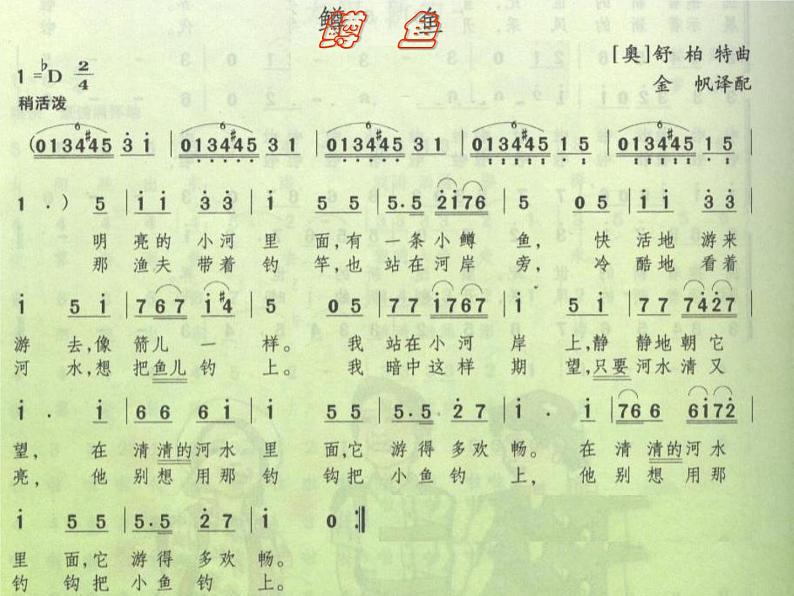 鳟 鱼
[奥]舒 柏 特曲
1=♭D 2/4
金 帆译配
稍活泼
(0134♯45 3 i | 0134♯45 3 i | 0134♯45 31 | 0134♯45 31 | 0134♯45 1 5 | 0134♯45 1 5 |
1 · ) 5 | i i 3 3 | i 5 | 5·5 2i76 | 5 05 | i i 3 3 |
明 亮的 小河 里 面,有 一条小鳟 鱼, 快 活地 游来
那 渔夫 带着 钓 竿,也 站在河岸 旁, 冷 酷地 看着
i 5 i | 767 i♯4 | 5 05 | 5 77 i766 | i 5 i | 77 7427 |
游 去,像 箭儿 一 样。 我 站在小河 岸 上,静 静地朝它
河 水,想 把鱼儿 钓 上。 我 暗中这样 期 望,只要 河水清又
i · i | 66 6i | i 55 | 5·5 27 | i · i | 766 6i72 |
望, 在 清清的河水 里 面,它 游得多欢 畅。 在 清清的河水
亮, 他 别想用那 钓 钩把 小鱼钓 上, 他 别想用那
i 55 | 5·5 27 | i 0 :‖
里 面,它 游得多欢 畅。
钓 钩把 小鱼钓 上。